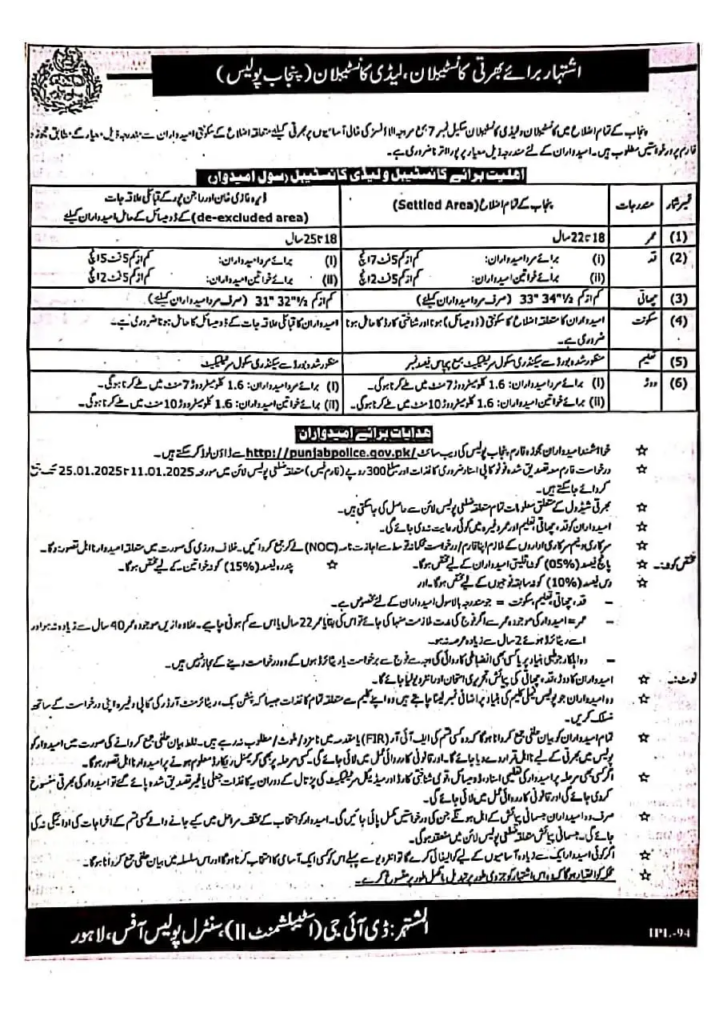 اشتہار برائے بھرتی کانسٹیبلان، لیڈی کانسٹیبلان (پنجاب پولیس)
پنجاب کے تمام اضلاع میں کانسٹیبلان ولیڈی کانسٹیبلان سکیل نمبر 7 بمع مروجہ الاؤنسز کی خالی آسامیوں پر بھرتی کیلئے متعلقہ اضلاع کے سکونتی امیدواران سے مندرجہ ذیل معیار کے مطابق مجوزہ
فارم پر درخواستیں مطلوب ہیں۔ امیدواران کے لئے مندرجہ ذیل معیار پر پورا اترنا ضروری ہے۔
اہلیت برائے کانسٹیبل ولیڈی کانسٹیبل (سول امیدوار)
نمبر شمار مندرجات پنجاب کے تمام اضلاع (Settled Area) ڈیرہ غازی خان اور راجن پور کے قبائلی علاقہ جات
(de-excluded area) کے ڈومیسائل کے حامل امیدواران کیلئے
(1) عمر 18 تا 22 سال 18 تا 25 سال
(2) قد (i) برائے مرد امیدواران: کم از کم 5 فٹ 7 انچ (i) برائے مرد امیدواران: کم از کم 5 فٹ 5 انچ
(ii) برائے خواتین امیدواران: کم از کم 5 فٹ 2 انچ (ii) برائے خواتین امیدواران: کم از کم 5 فٹ 2 انچ
(3) چھاتی کم از کم 33" 34½" (صرف مرد امیدواران کیلئے) کم از کم 31" 32½" (صرف مرد امیدواران کیلئے)
(4) سکونت امیدواران کا متعلقہ اضلاع کا سکونتی (ڈومیسائل) ہونا اور شناختی کارڈ کا حامل ہونا امیدواران کا قبائلی علاقہ جات کے ڈومیسائل کا حامل ہونا ضروری ہے۔
ضروری ہے۔
(5) تعلیم منظور شدہ بورڈ سے سیکنڈری سکول سرٹیفکیٹ بمع پچاس فیصد نمبر منظور شدہ بورڈ سے سیکنڈری سکول سرٹیفکیٹ
(6) دوڑ (i) برائے مرد امیدواران: 1.6 کلومیٹر دوڑ 7 منٹ میں طے کرنا ہوگی۔ (i) برائے مرد امیدواران: 1.6 کلومیٹر دوڑ 7 منٹ میں طے کرنا ہوگی۔
(ii) برائے خواتین امیدواران: 1.6 کلومیٹر دوڑ 10 منٹ میں طے کرنا ہوگی۔ (ii) برائے خواتین امیدواران: 1.6 کلومیٹر دوڑ 10 منٹ میں طے کرنا ہوگی۔
ہدایات برائے امیدواران
☆ خواہشمند امیدواران مجوزہ فارم پنجاب پولیس کی ویب سائٹ http://punjabpolice.gov.pk/ سے ڈاؤن لوڈ کر سکتے ہیں۔
☆ درخواست فارم معہ تصدیق شدہ فوٹو کاپی اسناد ضروری کاغذات اور مبلغ 300 روپے (فارم فیس) متعلقہ ضلعی پولیس لائن میں مورخہ 11.01.2025 تا 25.01.2025 تک جمع
کروائے جا سکتے ہیں۔
☆ بھرتی شیڈول کے متعلق معلومات تمام متعلقہ ضلعی پولیس لائن سے حاصل کی جا سکتی ہیں۔
☆ امیدواران کو قد، چھاتی، تعلیم اور عمر وغیرہ میں کوئی رعایت نہ دی جائے گی۔
☆ سرکاری و نیم سرکاری اداروں کے ملازم اپنا فارم / درخواست محکمانہ توسط سے اجازت نامہ (NOC) لے کر جمع کروائیں۔ خلاف ورزی کی صورت میں متعلقہ امیدوار نااہل تصور ہوگا۔
مختص کوٹہ:- ☆ پانچ فیصد (05%) کوٹہ اقلیتی امیدواران کے لیے مختص ہوگا۔ ☆ پندرہ فیصد (15%) کوٹہ خواتین کے لیے مختص ہوگا۔
☆ دس فیصد (10%) کوٹہ سابقہ فوجیوں کے لیے مختص ہوگا۔ اور
– قد، چھاتی، تعلیم، سکونت = جو مندرجہ بالا سول امیدواران کے لئے مخصوص ہے۔
– عمر = امیدوار کی موجودہ عمر سے اگر فوج کی مدت ملازمت منہا کی جائے تو اس کی بقایا عمر 22 سال یا اس سے کم ہونی چاہیے۔ علاوہ ازیں موجودہ عمر 40 سال سے زیادہ نہ ہو اور
اسے ریٹائرڈ ہوئے 2 سال سے زیادہ عرصہ نہ ہو۔
– وہ اہلکار جو طبی بنیاد پر یا کسی بھی انضباطی کاروائی کی وجہ سے فوج سے برخواست یا ریٹائرڈ ہوں گے وہ درخواست دینے کے مجاز نہیں ہیں۔
نوٹ:- ☆ امیدواران کا دوڑ، قد، چھاتی کی پیمائش، تحریری امتحان اور انٹرویو لیا جائے گا۔
☆ وہ امیدواران جو پولیس فیملی کلیم کی بنیاد پر اضافی نمبر لینا چاہتے ہیں وہ اپنے کلیم سے متعلقہ تمام کاغذات جیسا کہ پنشن بک، ریٹائرمنٹ آرڈر کی کاپی وغیرہ اپنی درخواست کے ساتھ
منسلک کریں۔
☆ تمام امیدواران کو بیان حلفی جمع کروانا ہوگا کہ وہ کسی قسم کی ایف آئی آر (FIR) یا مقدمہ میں نامزد / ملوث / مطلوب نہ رہے ہیں۔ غلط بیان حلفی جمع کروانے کی صورت میں امیدوار کو
پولیس میں بھرتی کے لیے نااہل قرار دے دیا جائے گا۔ اور قانونی کارروائی عمل میں لائی جائے گی، کسی مرحلہ پر بھی کریمنل ریکارڈ معلوم ہونے پر امیدوار نااہل تصور ہوگا۔
☆ اگر کسی بھی مرحلہ پر امیدوار کی تعلیمی اسناد، ڈومیسائل، قومی شناختی کارڈ اور میڈیکل سرٹیفکیٹ کی پڑتال کے دوران یہ کاغذات جعلی یا غیر تصدیق شدہ پائے گئے تو امیدوار کی بھرتی منسوخ
کر دی جائے گی اور قانونی کارروائی عمل میں لائی جائے گی۔
☆ صرف وہ امیدواران جسمانی پیمائش کے اہل ہونگے جن کی درخواستیں مکمل پائی جائیں گی۔ امیدوار کو انتخاب کے مختلف مراحل میں کیے جانے والے کسی قسم کے اخراجات کی ادائیگی نہ کی
جائے گی۔ جسمانی پیمائش متعلقہ ضلعی پولیس لائن میں منعقد ہوگی۔
☆ اگر کوئی امیدوار ایک سے زیادہ آسامیوں کے لیے کوالیفائی کرے گا تو انٹرویو سے پہلے اس کو کسی ایک آسامی کا انتخاب کرنا ہوگا اور اس سلسلہ میں بیان حلفی جمع کروانا ہوگا۔
☆ محکمہ کو اختیار ہوگا کہ وہ اس اشتہار کو جزوی طور پر تبدیل یا مکمل طور پر منسوخ کر سکے۔
المشتہر: ڈی آئی جی (اسٹیبلشمنٹ II) سنٹرل پولیس آفس، لاہور
IPL-94